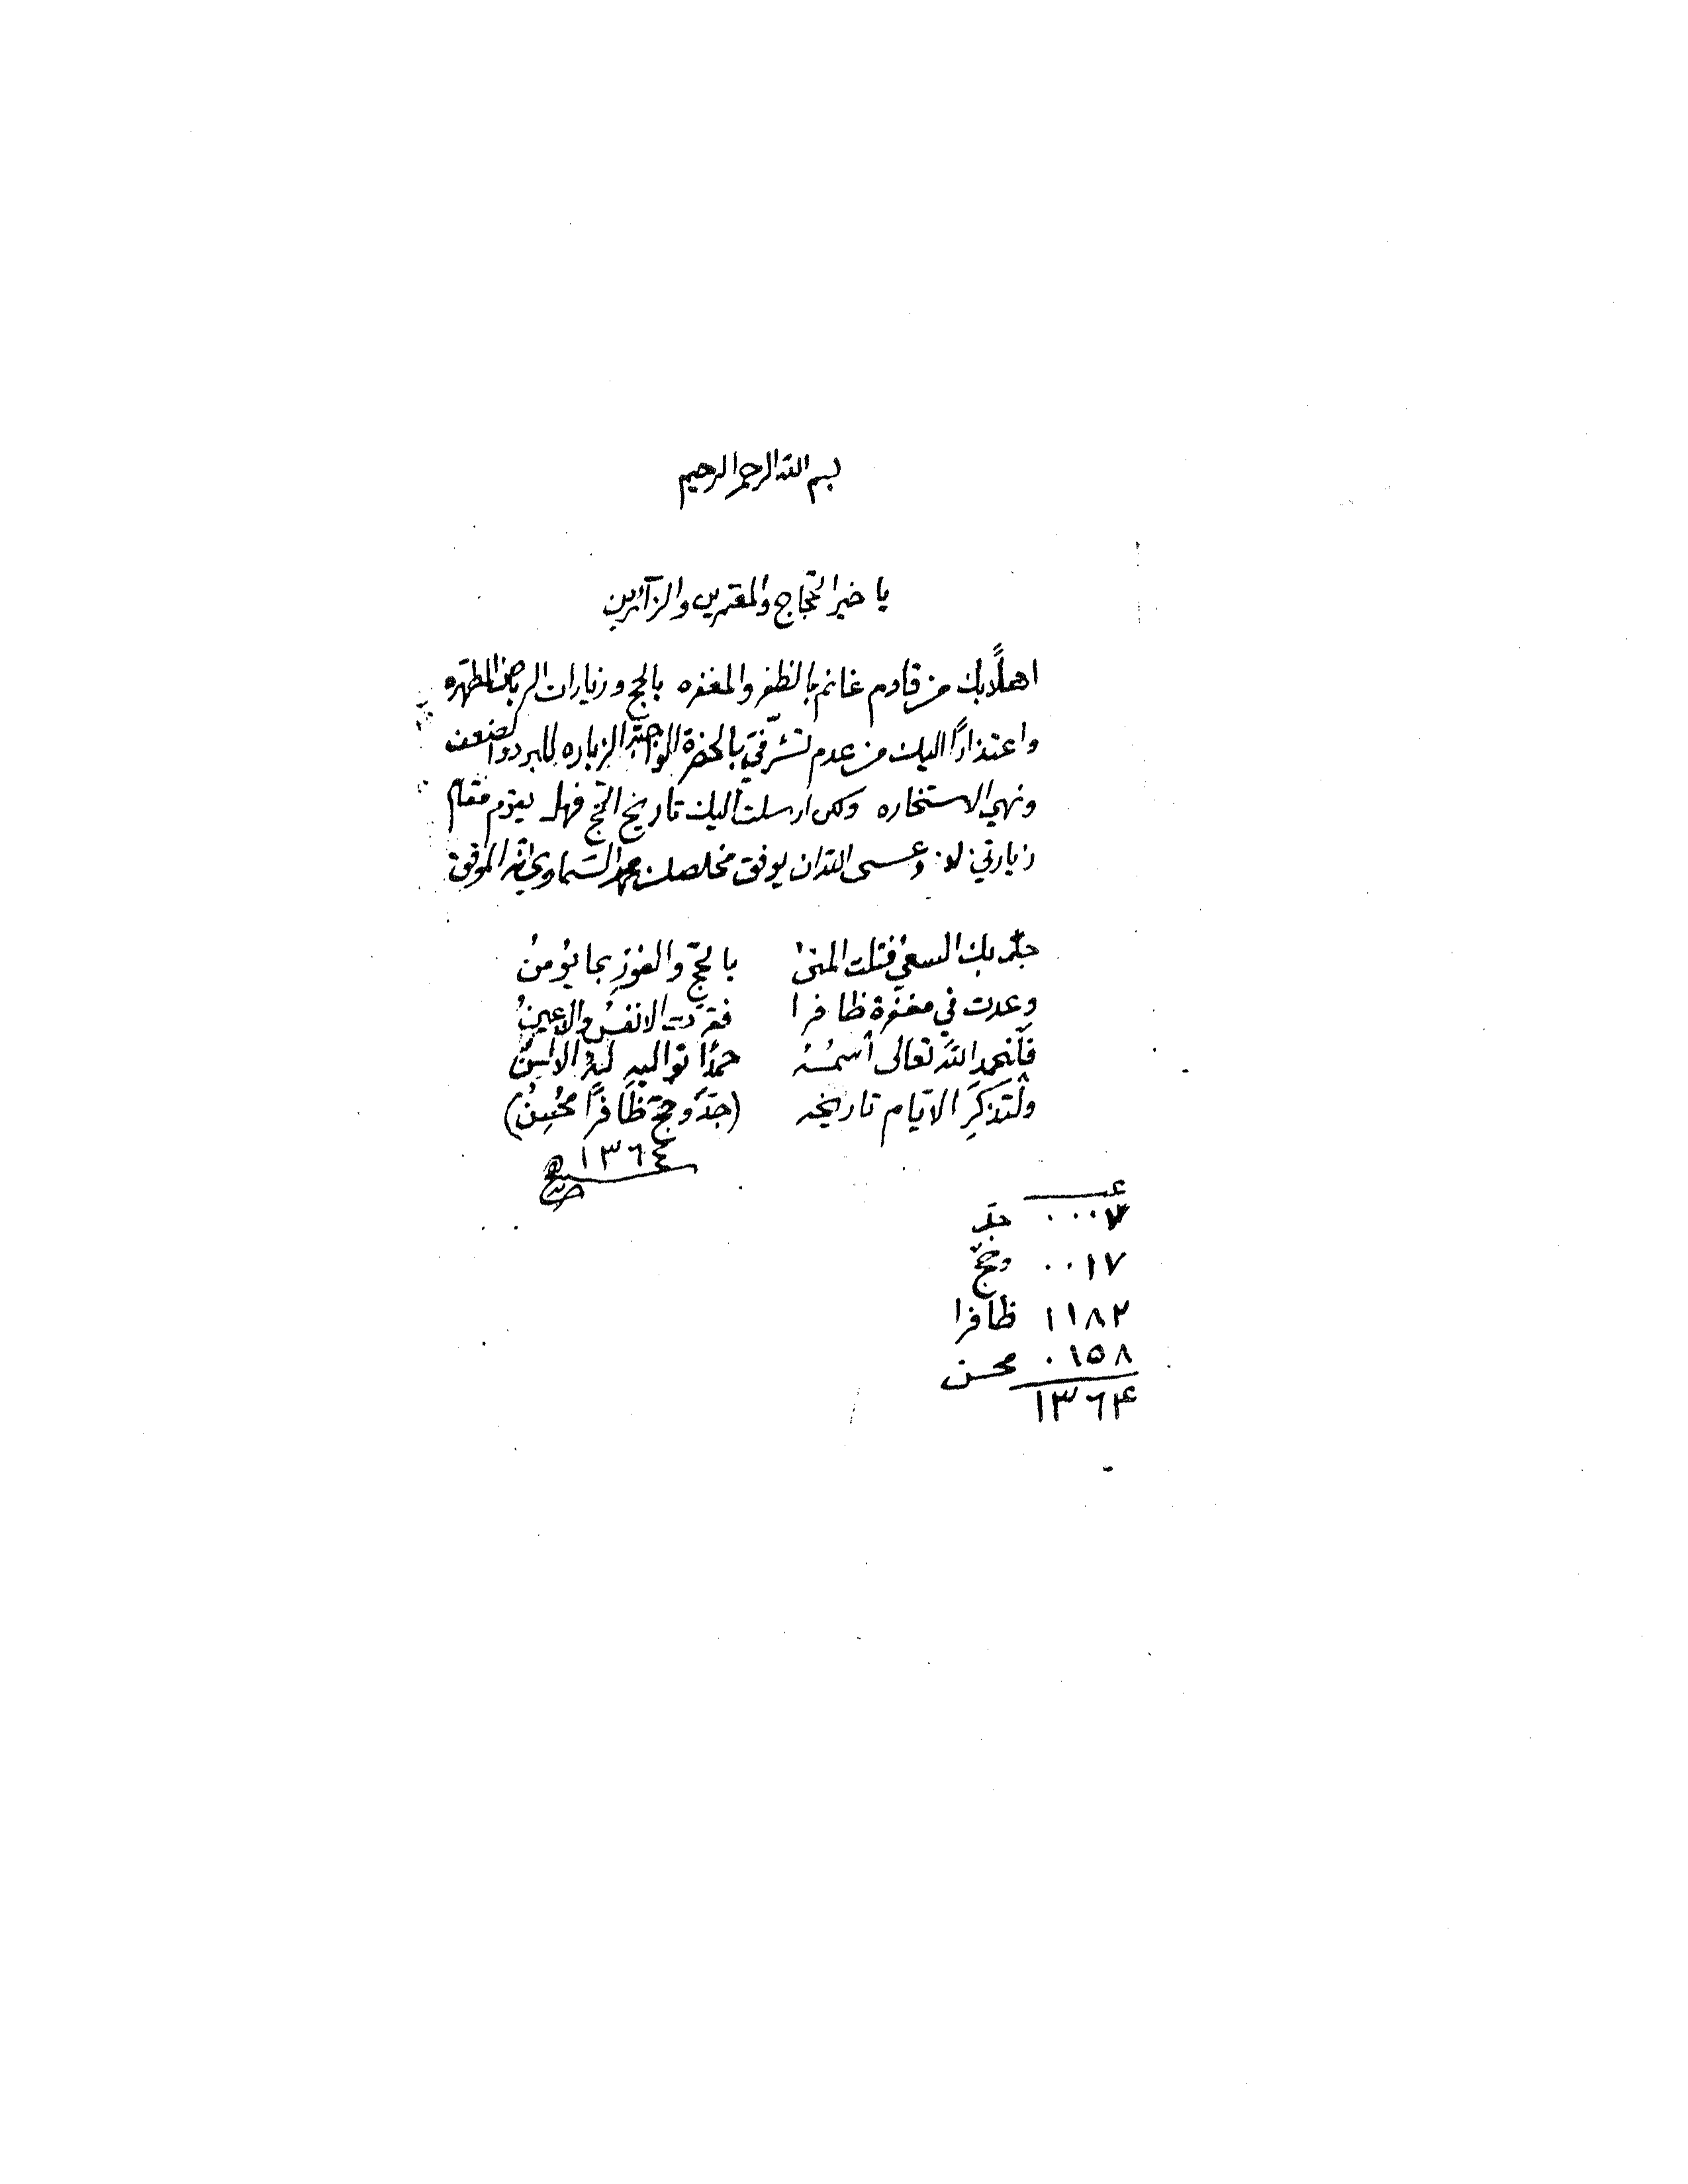 بسم الله الرحمن الرحيم
يا خير الحجاج والمعتمرين والزآئرين
اهلًا بك من قادم غانم بالظفر والمغفره بالحج وزيارات الرياض المطهّره
واعتذارًا اليك من عدم تشرّفي بالحضرة الزياره للبرد والضعف
ونهي الاستخاره ولكن ارسلت اليك تاريخ الحج فهل يقوم مقام
زيارتي لا وعسى الله ان يوفق مخلصك محمد السّماوي انه الموفق
جدّ بك السعيُ فنلت المنىٰ بالحجّ والفوزِ بما يؤمنُ
وعدت في مغفرة ظافرا فقرّت الانفسُ والاعينُ
فلنحمد اللهَ تعالى اسمُهُ حمدًا تواليه له الالسنُ
ولتذكرِ الايّام تاريخه (جدّ وحجّ ظافرًا محسنُ)
١٣٦٤
٠٠٠٧ جدّ
٠٠١٧ وحجّ
١١٨٢ ظافرا
٠١٥٨ محسن
١٣٦٤